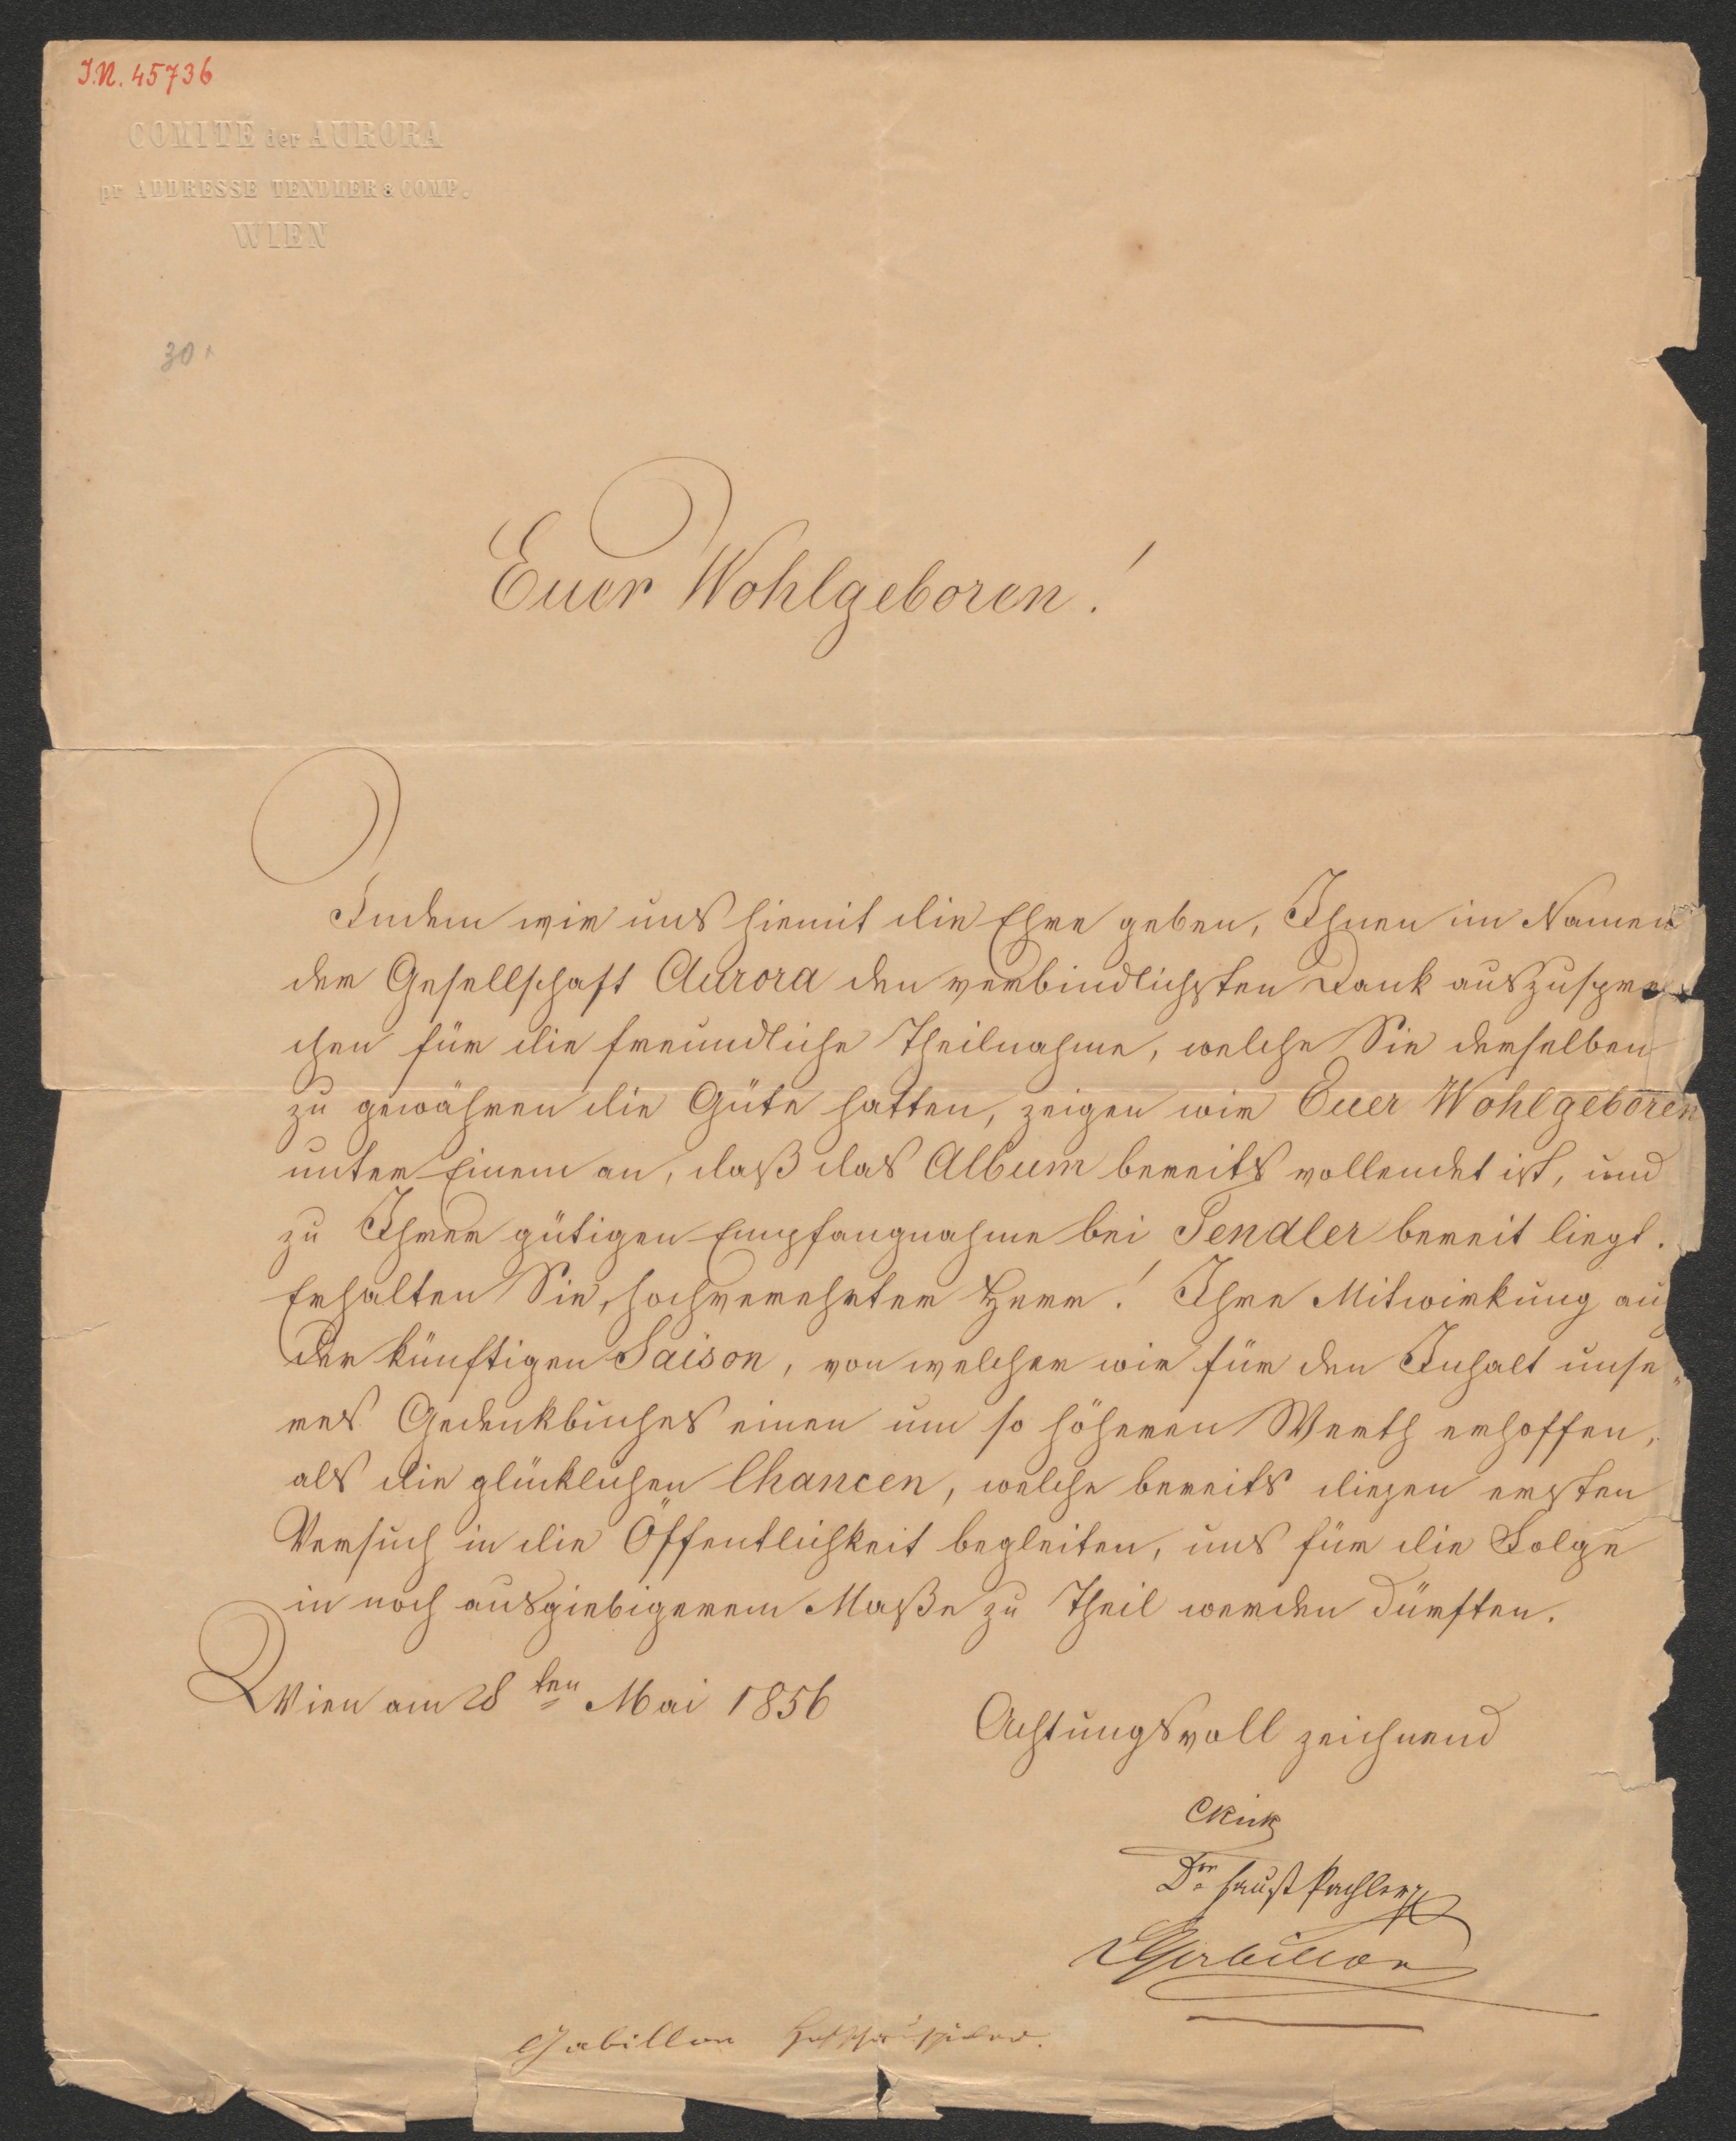 I.N. 45736
COMITÉ der AURORA
pr ADDRESSE TENDLER & COMP.
WIEN
30
Euer Wohlgeboren!
Indem wir uns hiemit die Ehre geben, Ihnen im Namen
der Gesellschaft Aurora den verbindlichsten Dank auszuspre-
chen für die freundliche Theilnahme, welche Sie derselben
zu gewähren die Güte hatten, zeigen wir Euer Wohlgeboren
unter Einem an, daß das Album bereits vollendet ist, und
zu Ihrer gütigen Empfangnahme bei Tendler bereit liegt.
Erhalten Sie, hochverehrter Herr! Ihre Mitwirkung auch
der künftigen Saison, von welcher wir für den Inhalt unse-
res Gedenkbuches einen um so höheren Werth erhoffen,
als die glücklichen Chancen, welche bereits diesen ersten
Versuch in die Öffentlichkeit begleiten, uns für die Folge
in noch ausgiebigerem Maße zu Theil werden dürften.
Wien am 28ten Mai 1856
Achtungsvoll zeichnend
Dr. Faust Pachler
LGabillon
Gabillon Hofschauspieler.